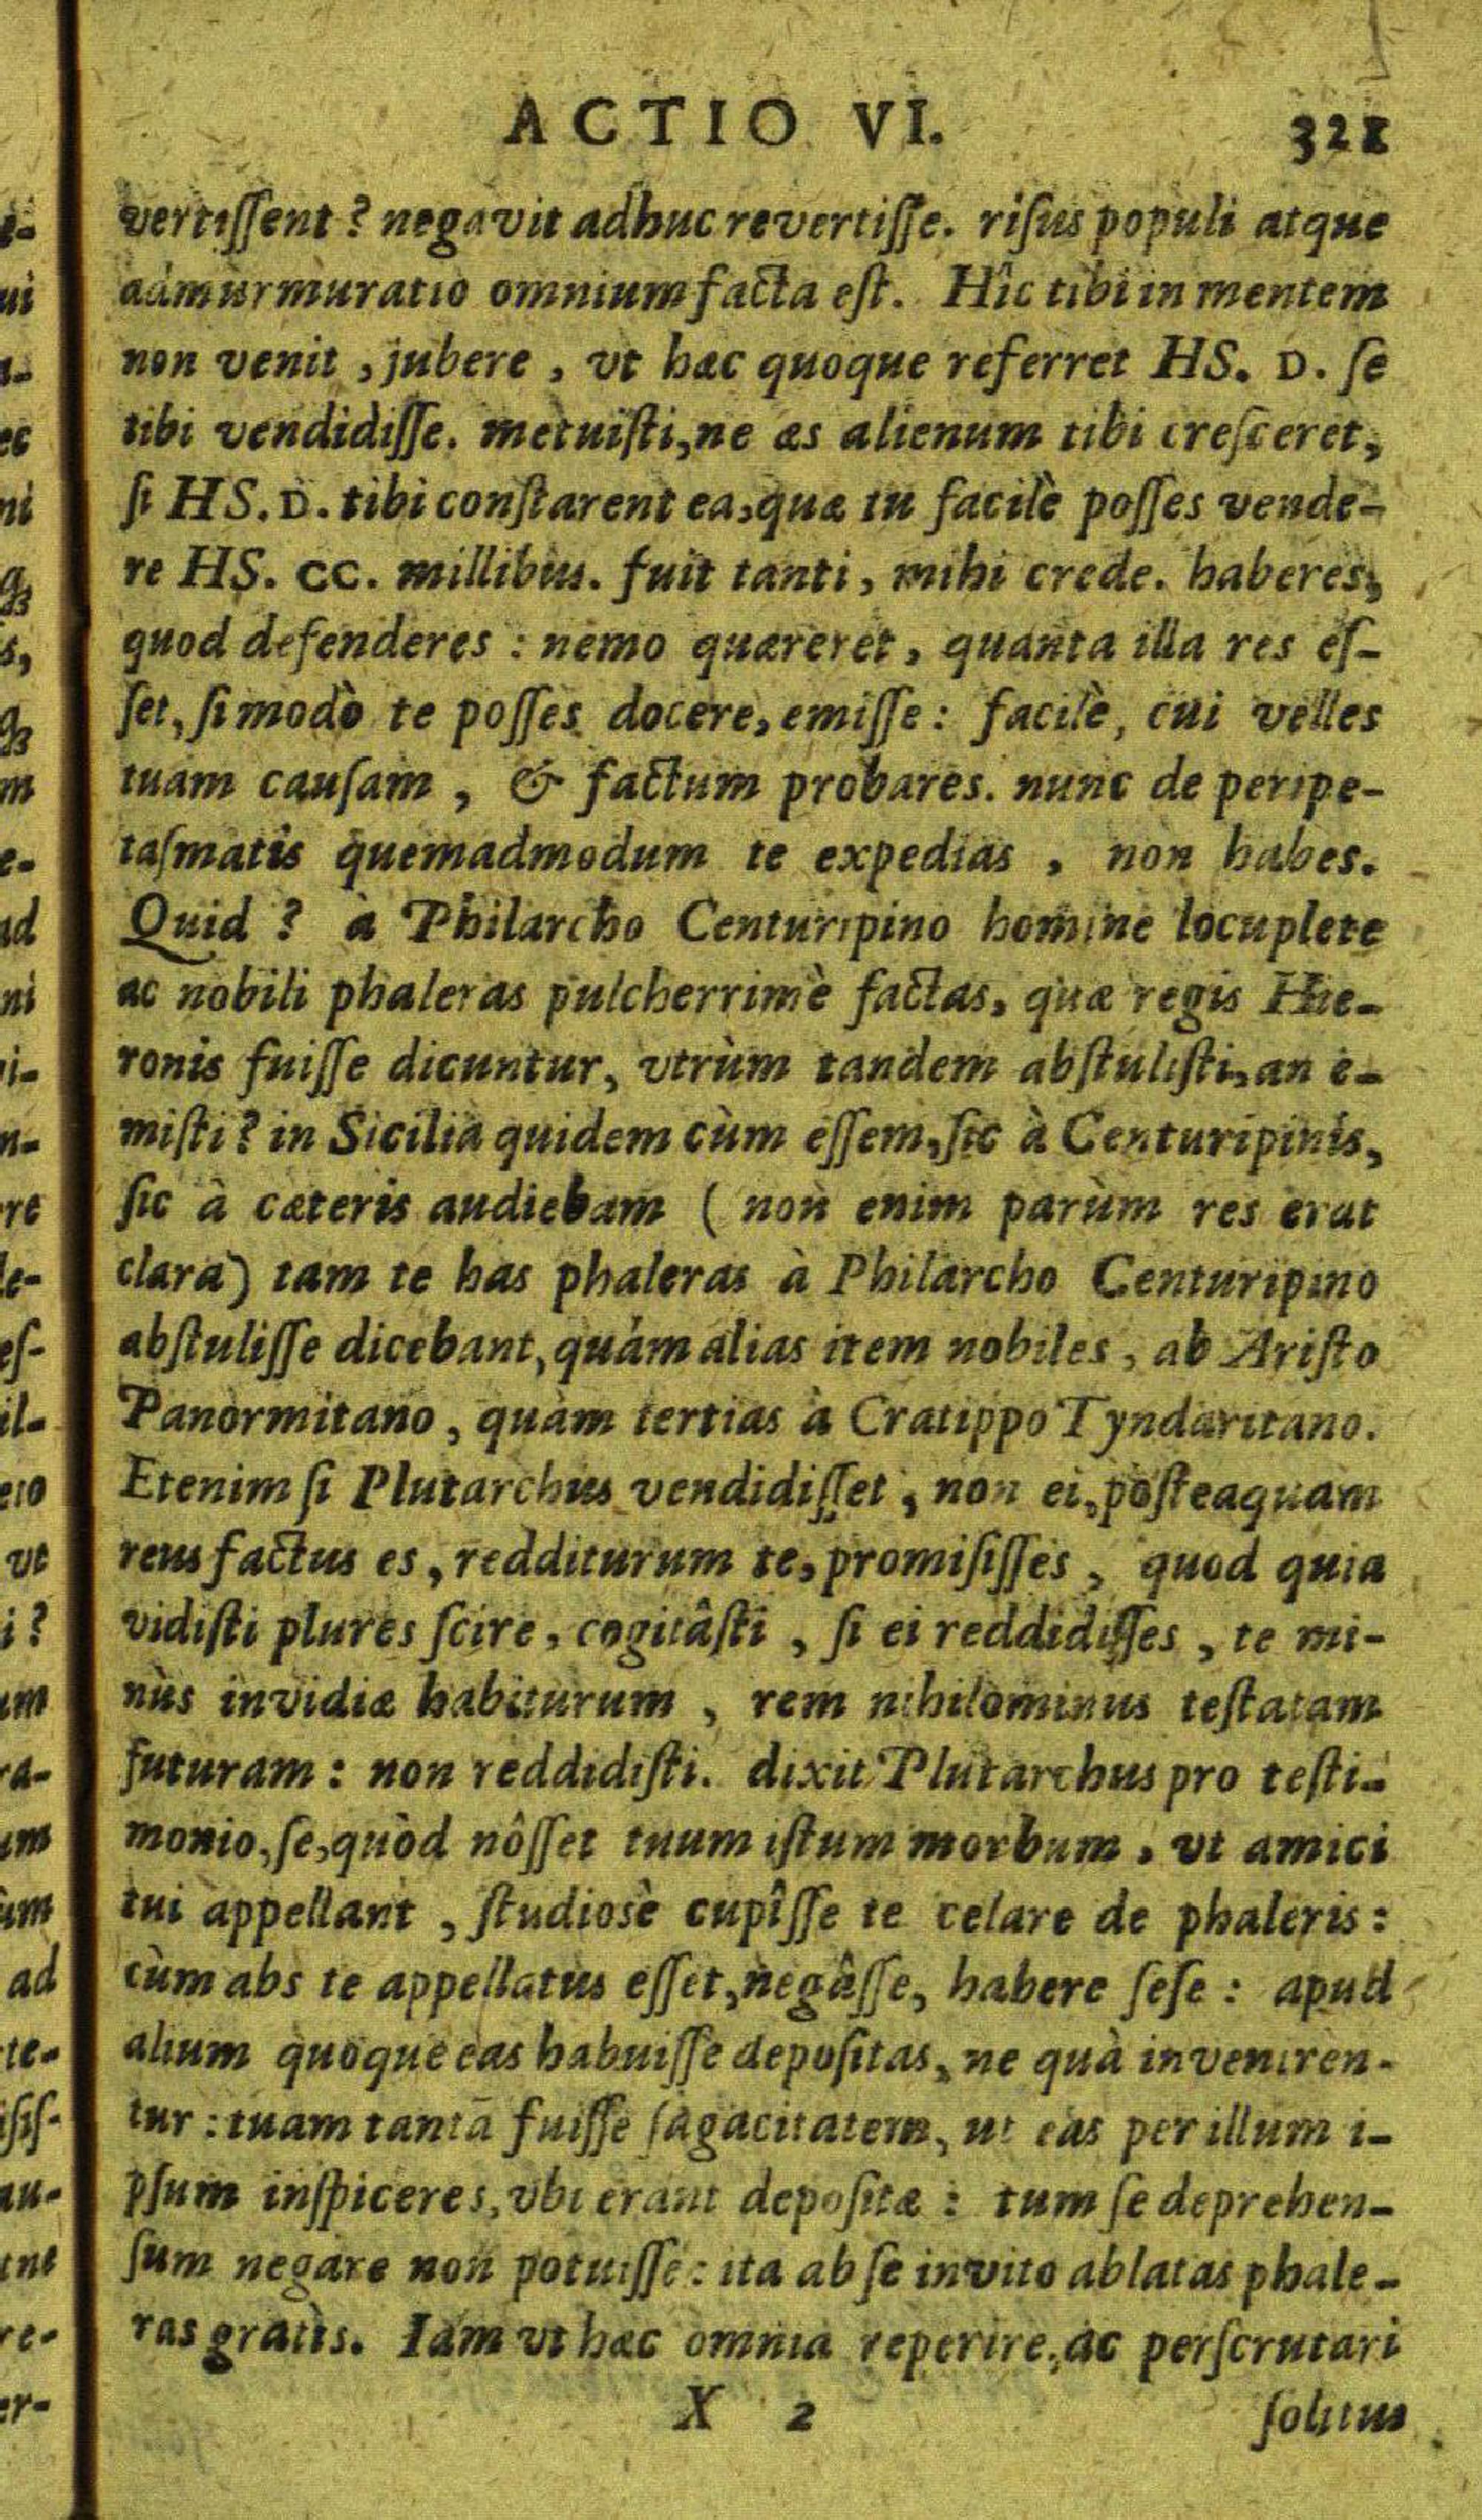 ACTIO VI. 321
vertiſſent? negavit adhuc revertiſſe. riſus populi atque
admurmuratio omnium facta eſt. Hîc tibi in mentem
non venit, jubere, vt hæc quoque referret HS. D. ſe
tibi vendidiſſe. metuiſti, ne æs alienum tibi creſceret,
ſi HS. D. tibi conſtarent ea, quæ tu facilè poſſes vende-
re HS. CC. millibus. fuit tanti, mihi crede. haberes,
quod defenderes: nemo quæreret, quanta illa res eſ-
ſet, ſi modò te poſſes docere, emiſſe: facilè, cui velles
tuam cauſam, & factum probares. nunc de peripe-
taſmatis quemadmodum te expedias, non habes.
Quid? à Philarcho Centuripino homine locuplete
ac nobili phaleras pulcherrimè factas, quæ regis Hie-
ronis fuiſſe dicuntur, vtrùm tandem abſtuliſti, an e-
miſti? in Sicilia quidem cùm eſſem, ſic à Centuripinis,
ſic à cæteris audiebam (non enim parùm res erat
clara) tam te has phaleras à Philarcho Centuripino
abſtuliſſe dicebant, quàm alias item nobiles, ab Ariſto
Panormitano, quàm tertias à Cratippo Tyndaritano.
Etenim ſi Plutarchus vendidiſſet, non ei, poſteaquam
reus factus es, redditurum te, promiſiſſes, quod quia
vidiſti plures ſcire, cogitâſti, ſi ei reddidiſſes, te mi-
nùs invidiæ habiturum, rem nihilominus teſtatam
futuram: non reddidiſti. dixit Plutarchus pro teſti-
monio, ſe, quòd nôſſet tuum iſtum morbum, vt amici
tui appellant, ſtudiosè cupîſſe te celare de phaleris:
cùm abs te appellatus eſſet, negâſſe, habere ſeſe: apud
alium quoque eas habuiſſe depoſitas, ne quà inveniren-
tur: tuam tantā fuiſſe ſagacitatem, ut eas per illum i-
pſum inſpiceres, vbi erant depoſitæ: tum ſe deprehen-
ſum negare non potuiſſe: ita ab ſe invito ablatas phale-
ras gratìs. Iam vt hæc omnia reperire, ac perſcrutari
X 2 ſolitus